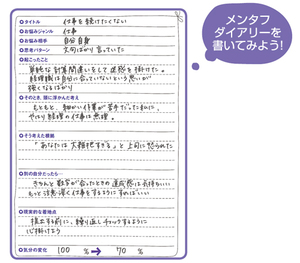 メンタフ
ダイアリーを
書いてみよう!
●タイトル 仕事を続けたくない
●お悩みジャンル 仕事
●お悩み相手 自分自身
●思考パターン 文句ばかり言っていた
●起こったこと
単純な計算間違いをして迷惑を掛けた。
経理職は自分に合っていないという思いが
強くなるばかり
●そのとき、頭に浮かんだ考え
もともと、細かい作業が苦手だった私に、
やはり経理の仕事は無理。
●そう考えた根拠
「あなたは大雑把すぎる」と上司に怒られた
●別の自分だったら…
きちんと数字が合ったときの達成感は気持ちいい
もっと注意深く仕事をするようにすればいい
●現実的な着地点
提出する前に、繰り返しチェックするように
心掛けよう
●気分の変化 100 % → 70 %